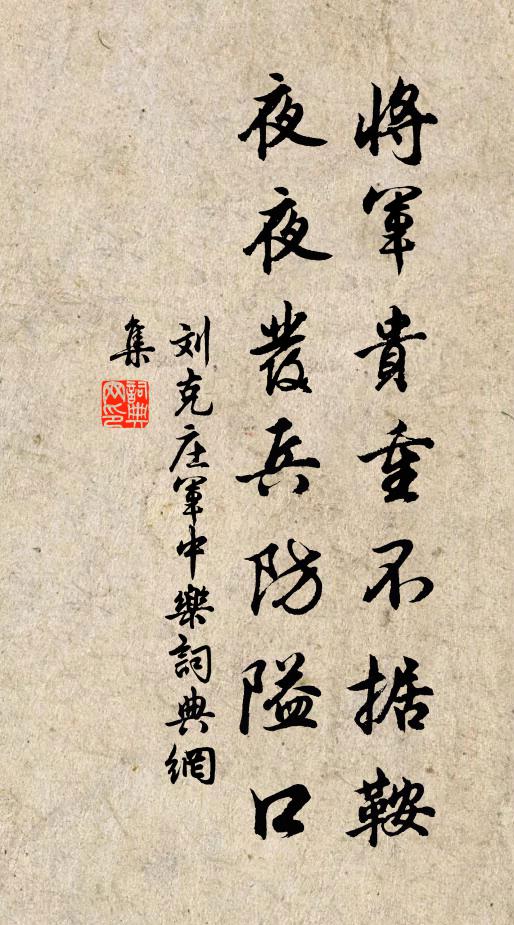 將軍貴重不据鞍
夜夜發兵防隘口
刘克庄軍中樂詞典網
集
詞典
网印